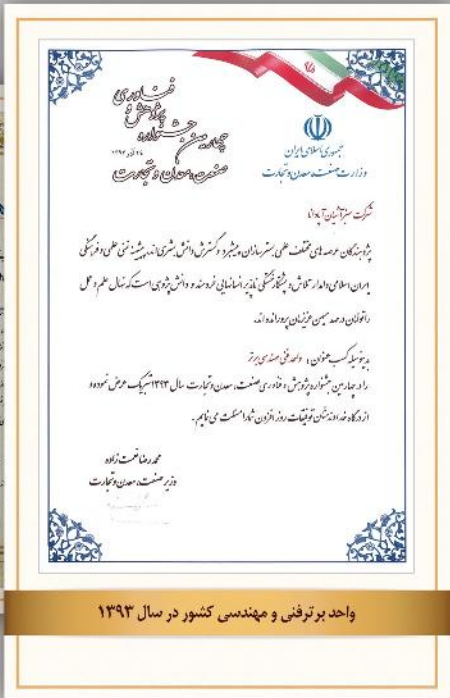 جمهوری اسلامی ایران
وزارت صنعت، معدن و تجارت
چهارمین جشنواره
پژوهش و
فناوری
صنعت، معدن و تجارت
شرکت سبز آشیان آپادانا
پژوهندگان عرصه های مختلف علمی، بسترسازان پیشبرد و گسترش دانش بشری اند. پیشینه غنی علمی و فرهنگی
ایران اسلامی وامدار تلاش و خستگی ناپذیر انسانهایی خردمند و دانش پژوهی است که نهال علم و عمل
را توامان در مهد میهن عزیزمان پرورانده اند.
بدینوسیله کسب عنوان واحد فنی مهندسی برتر
را در چهارمین جشنواره پژوهش و فناوری صنعت، معدن و تجارت سال ۱۳۹۳ تبریک عرض نموده و
از درگاه خداوند منان توفیقات روز افزون شما را مسئلت می نمایم.
محمدرضا نعمت زاده
وزیر صنعت، معدن و تجارت
واحد برتر فنی و مهندسی کشور در سال ۱۳۹۳